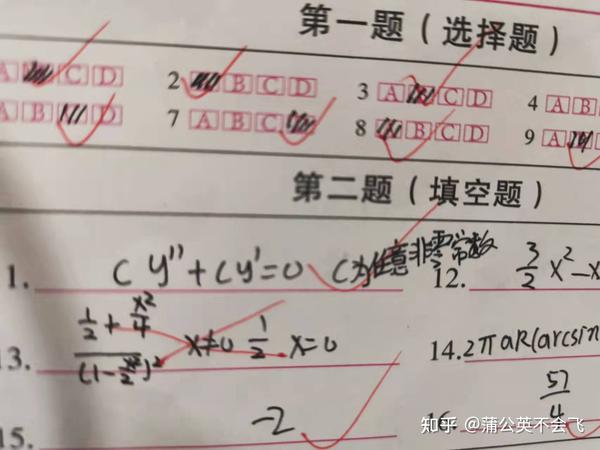 第一题(选择题)
A C D 2 B C D 3 A C D 4 A B
A B D 7 A B C 8 B C D 9 A
第二题(填空题)
1. C y''+Cy'=0 C为任意非零常数 12. 3/2 x²-x
3. (1/2+x²/4)/(1-x²/2)² x≠0 1/2. x=0 14. 2πaR(arcsin
15. -2 16. 57/4
知乎 @蒲公英不会飞